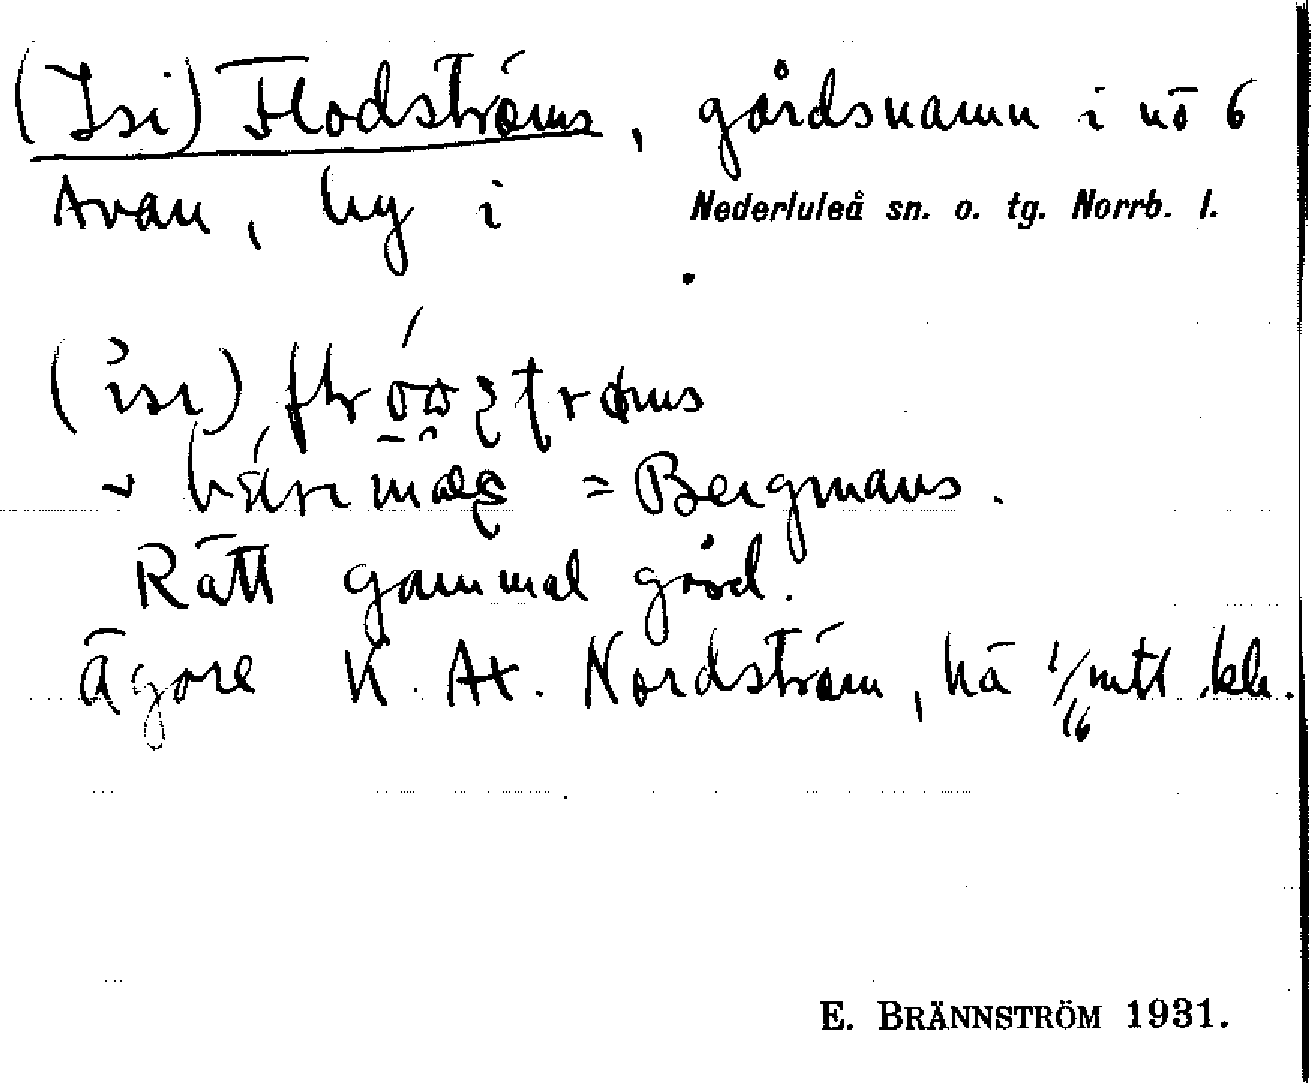 (Isi) Flodströms, gårdsnamn i nö 6
Avan, by i Nederluleå sn. o. tg. Norrb. l.
= Bergmans.
Rätt gammal gård.
Ägare K. Ax. Nordström, hä 1/16 mtl kr.
E. BRÄNNSTRÖM 1931.